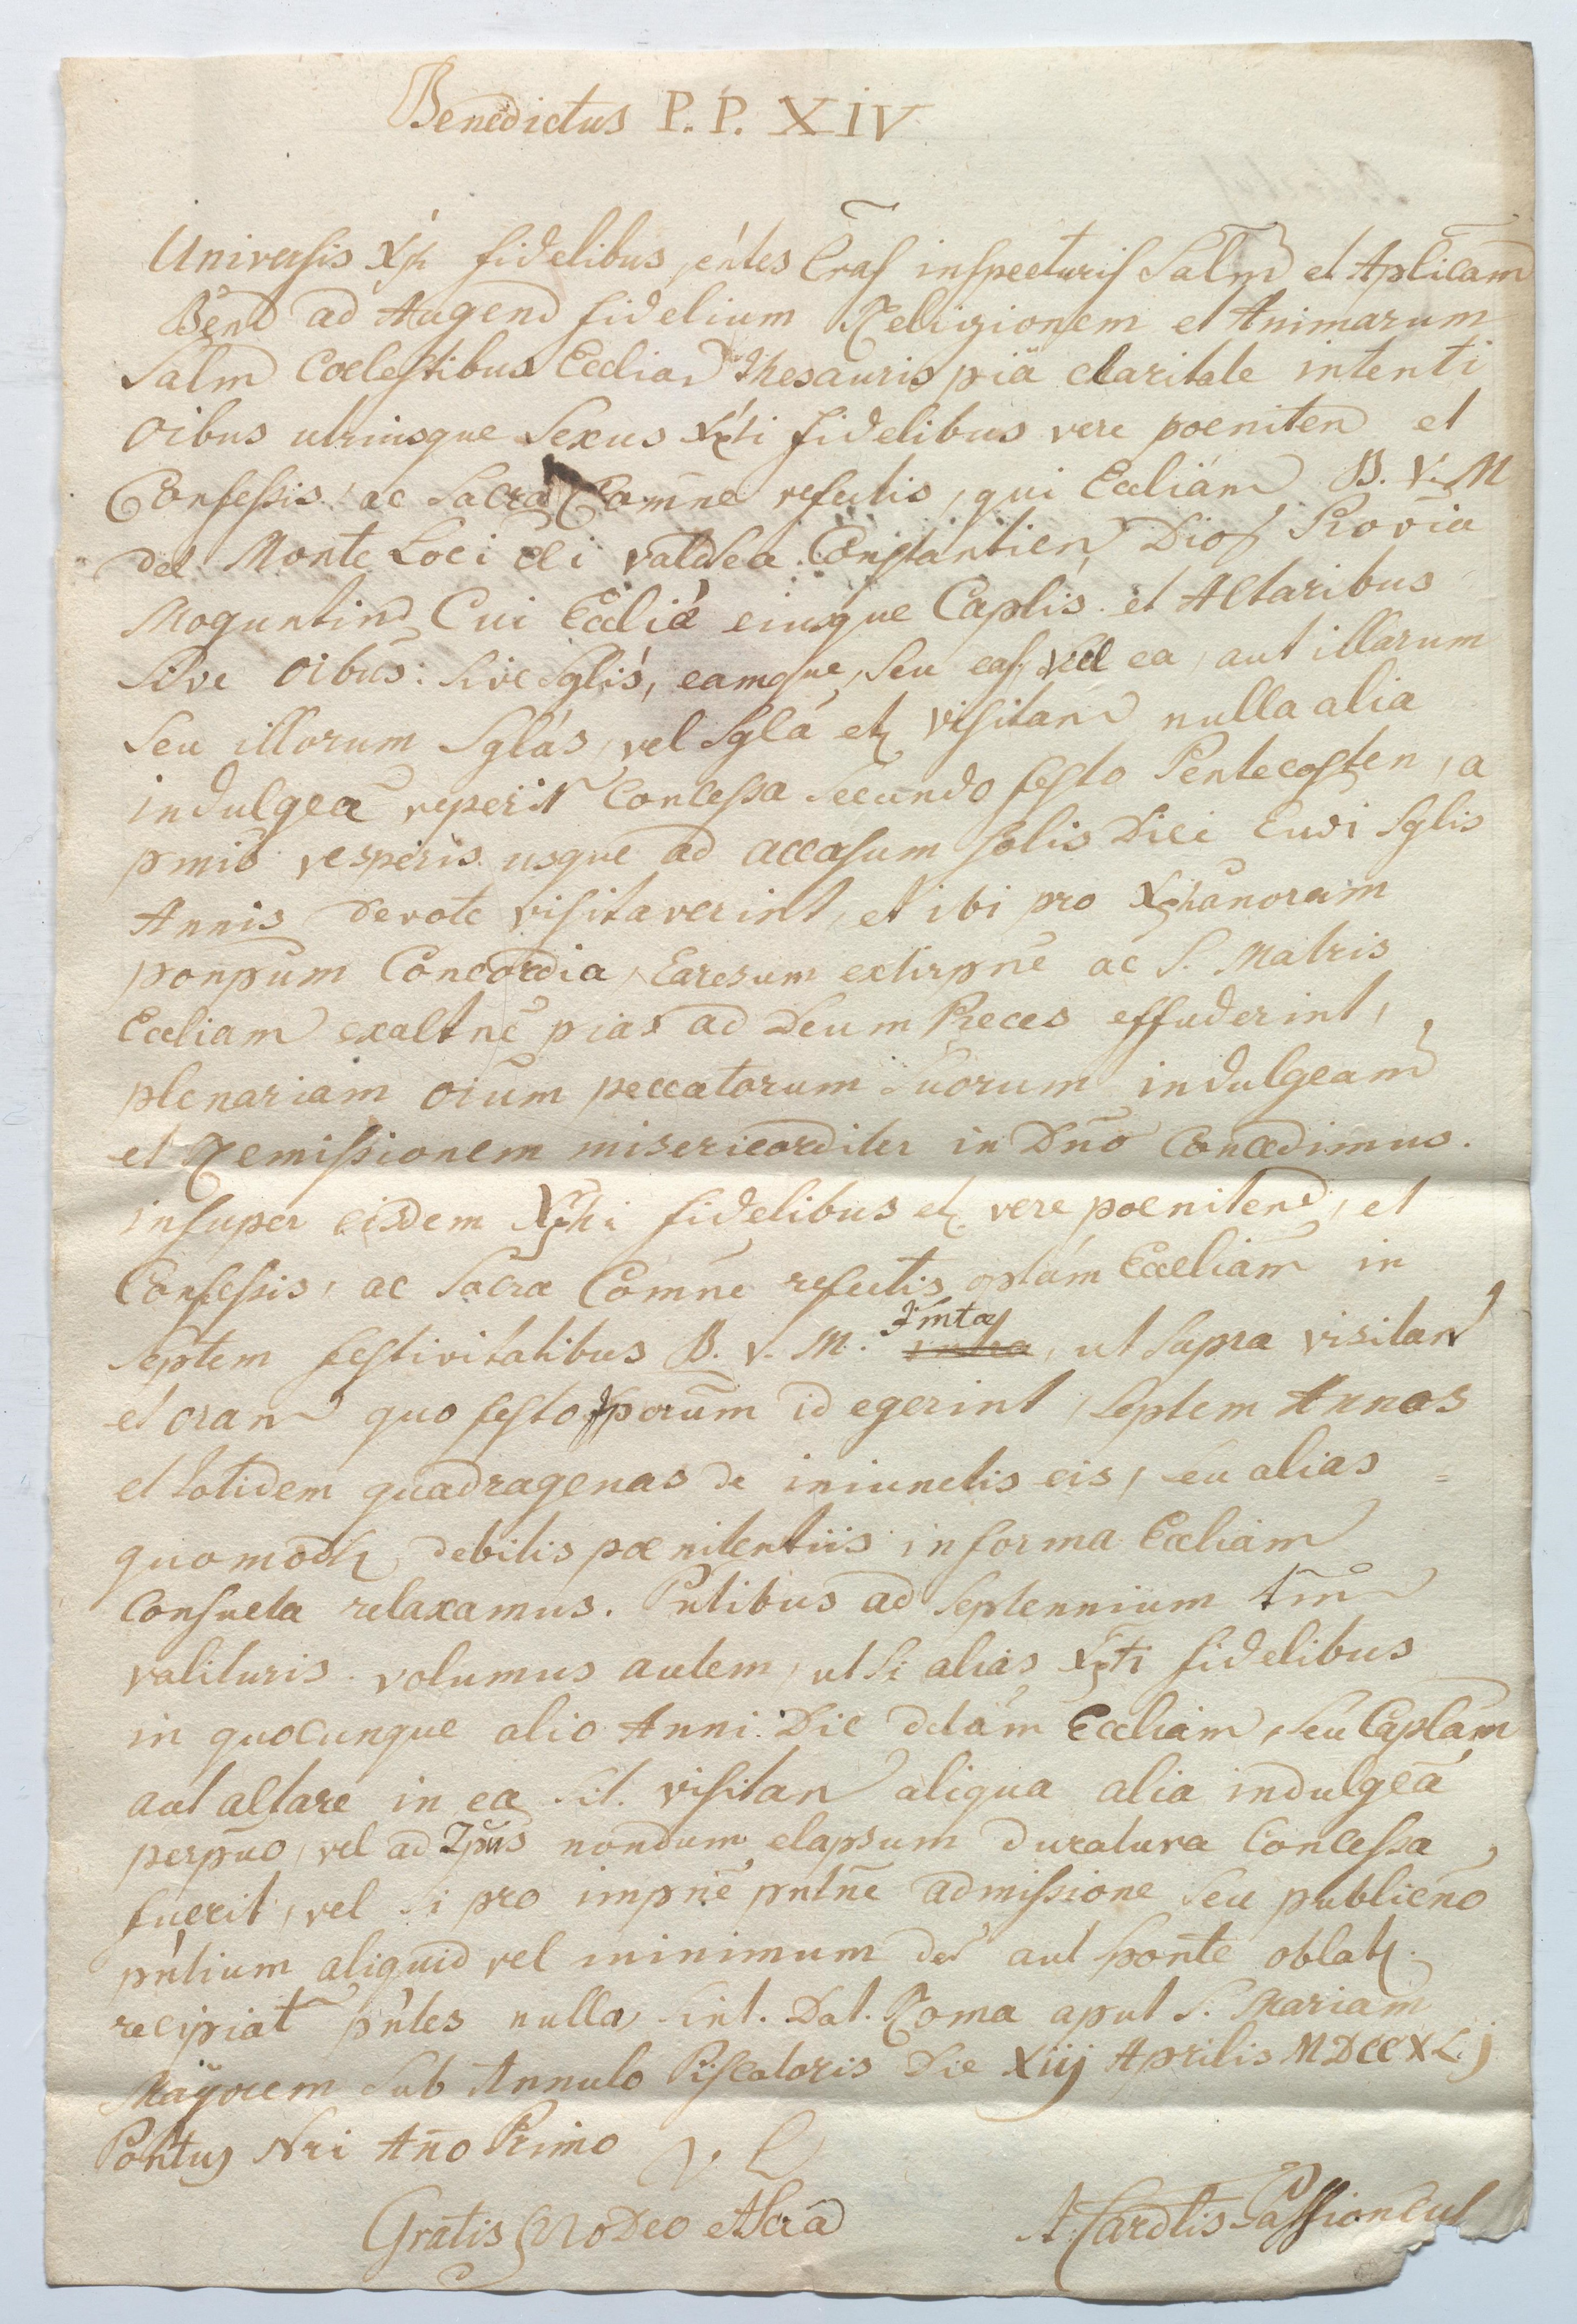 Benedictus P. P. XIV
Universis Xpi fidelibus p̄ntes Lr̄as inspecturis Salm̄ et Aplicam̄
Bened ad Augend fidelium Religionem et Animarum
Salm̄ Coelestibus Eccliad thesauris pia claritate intenti
oibus utriusque Sexus Xpti fidelibus vere poeniten et
Confessis, ac Sacra Com̄ne refectis, qui Eccliam B. V. M
del Monte Loci de valdsea Constantien Dios Provīa
Moguntind Cui Eccliae eiusque Caplis et Altaribus
Sive oibus: Sive Sglis, eamque, Seu eas, vel ea, aut illarum
Seu illorum Sglas, vel Sgla et visitand nulla alia
indulgeā reperit Concessa Secundo festo Pentecosten, a
pmis vesperis usque ad accasum solis Diei Eusdi Sglis
Annis devote visitaverint, et ibi pro Xphanorum
ponpum Concordia, Earesum extirpnē ac S. Matris
Eccliam exaltnē pias ad Deum Preces effuderint,
plenariam oium peccatorum Suorum indulgeam
et Remissionem misericorditer in Dn̄o Concedimus.
insuper eisdem Xphi fidelibus et vere poenitend, et
Confessis, ac Sacra Com̄ne refectis optam Eccliam in
Septem festivitatibus B. V. M. Imta, ut Supra visitan
et oran quo festo pporum id egerint, Septem Annos
et totidem quadragenas de iniunctis eis, seu alias =
quomodlt debitis poenitentiis in forma Eccliam
Consueta relaxamus. Pntibus ad Septennium tm̄
valituris. volumus autem, ut Si alias Xpti fidelibus
in quocunque alio Anni Die dctam Eccliam, Seu Caplam
aut altare in ea Sit. visitan aliqua alia indulgeā
perpuo, vel ad Tpus nondum elapsum duratura Concessa
fuerit, vel Si pro impnē pntnē admissione Seu publicnō
pn̄tium aliquid vel minimum det aut Sponte oblat.
recipiat p̄ntes nulla Sint. Dat. Roma aput S. Mariam
Mayorem Sub Annulo Piscatoris Die Xiij Aprilis MDCCXLj
Pontus Nri An̄o Primo
Gratis pro Deo et Scrā
A. Cardlis Passioneus